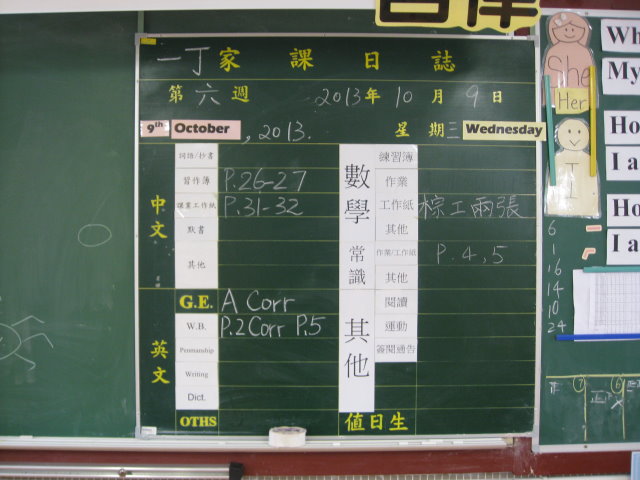 一丁家課日誌
第六週 2013年10月9日
9th October, 2013. 星期三 Wednesday
中文
詞語/抄書
習作簿 P.26-27
課業工作紙 P.31-32
默書
其他
英文
G.E. A Corr
W.B. P.2 Corr P.5
Penmanship
Writing
Dict.
OTHS
數學
練習簿
作業
工作紙 棕工兩張
其他
常識
作業/工作紙 P.4,5
其他
其他
閱讀
運動
簽閱通告
值日生
She
Her
I
Wh
My
Ho
I a
Ho
I a
6
1
16
14
10
24